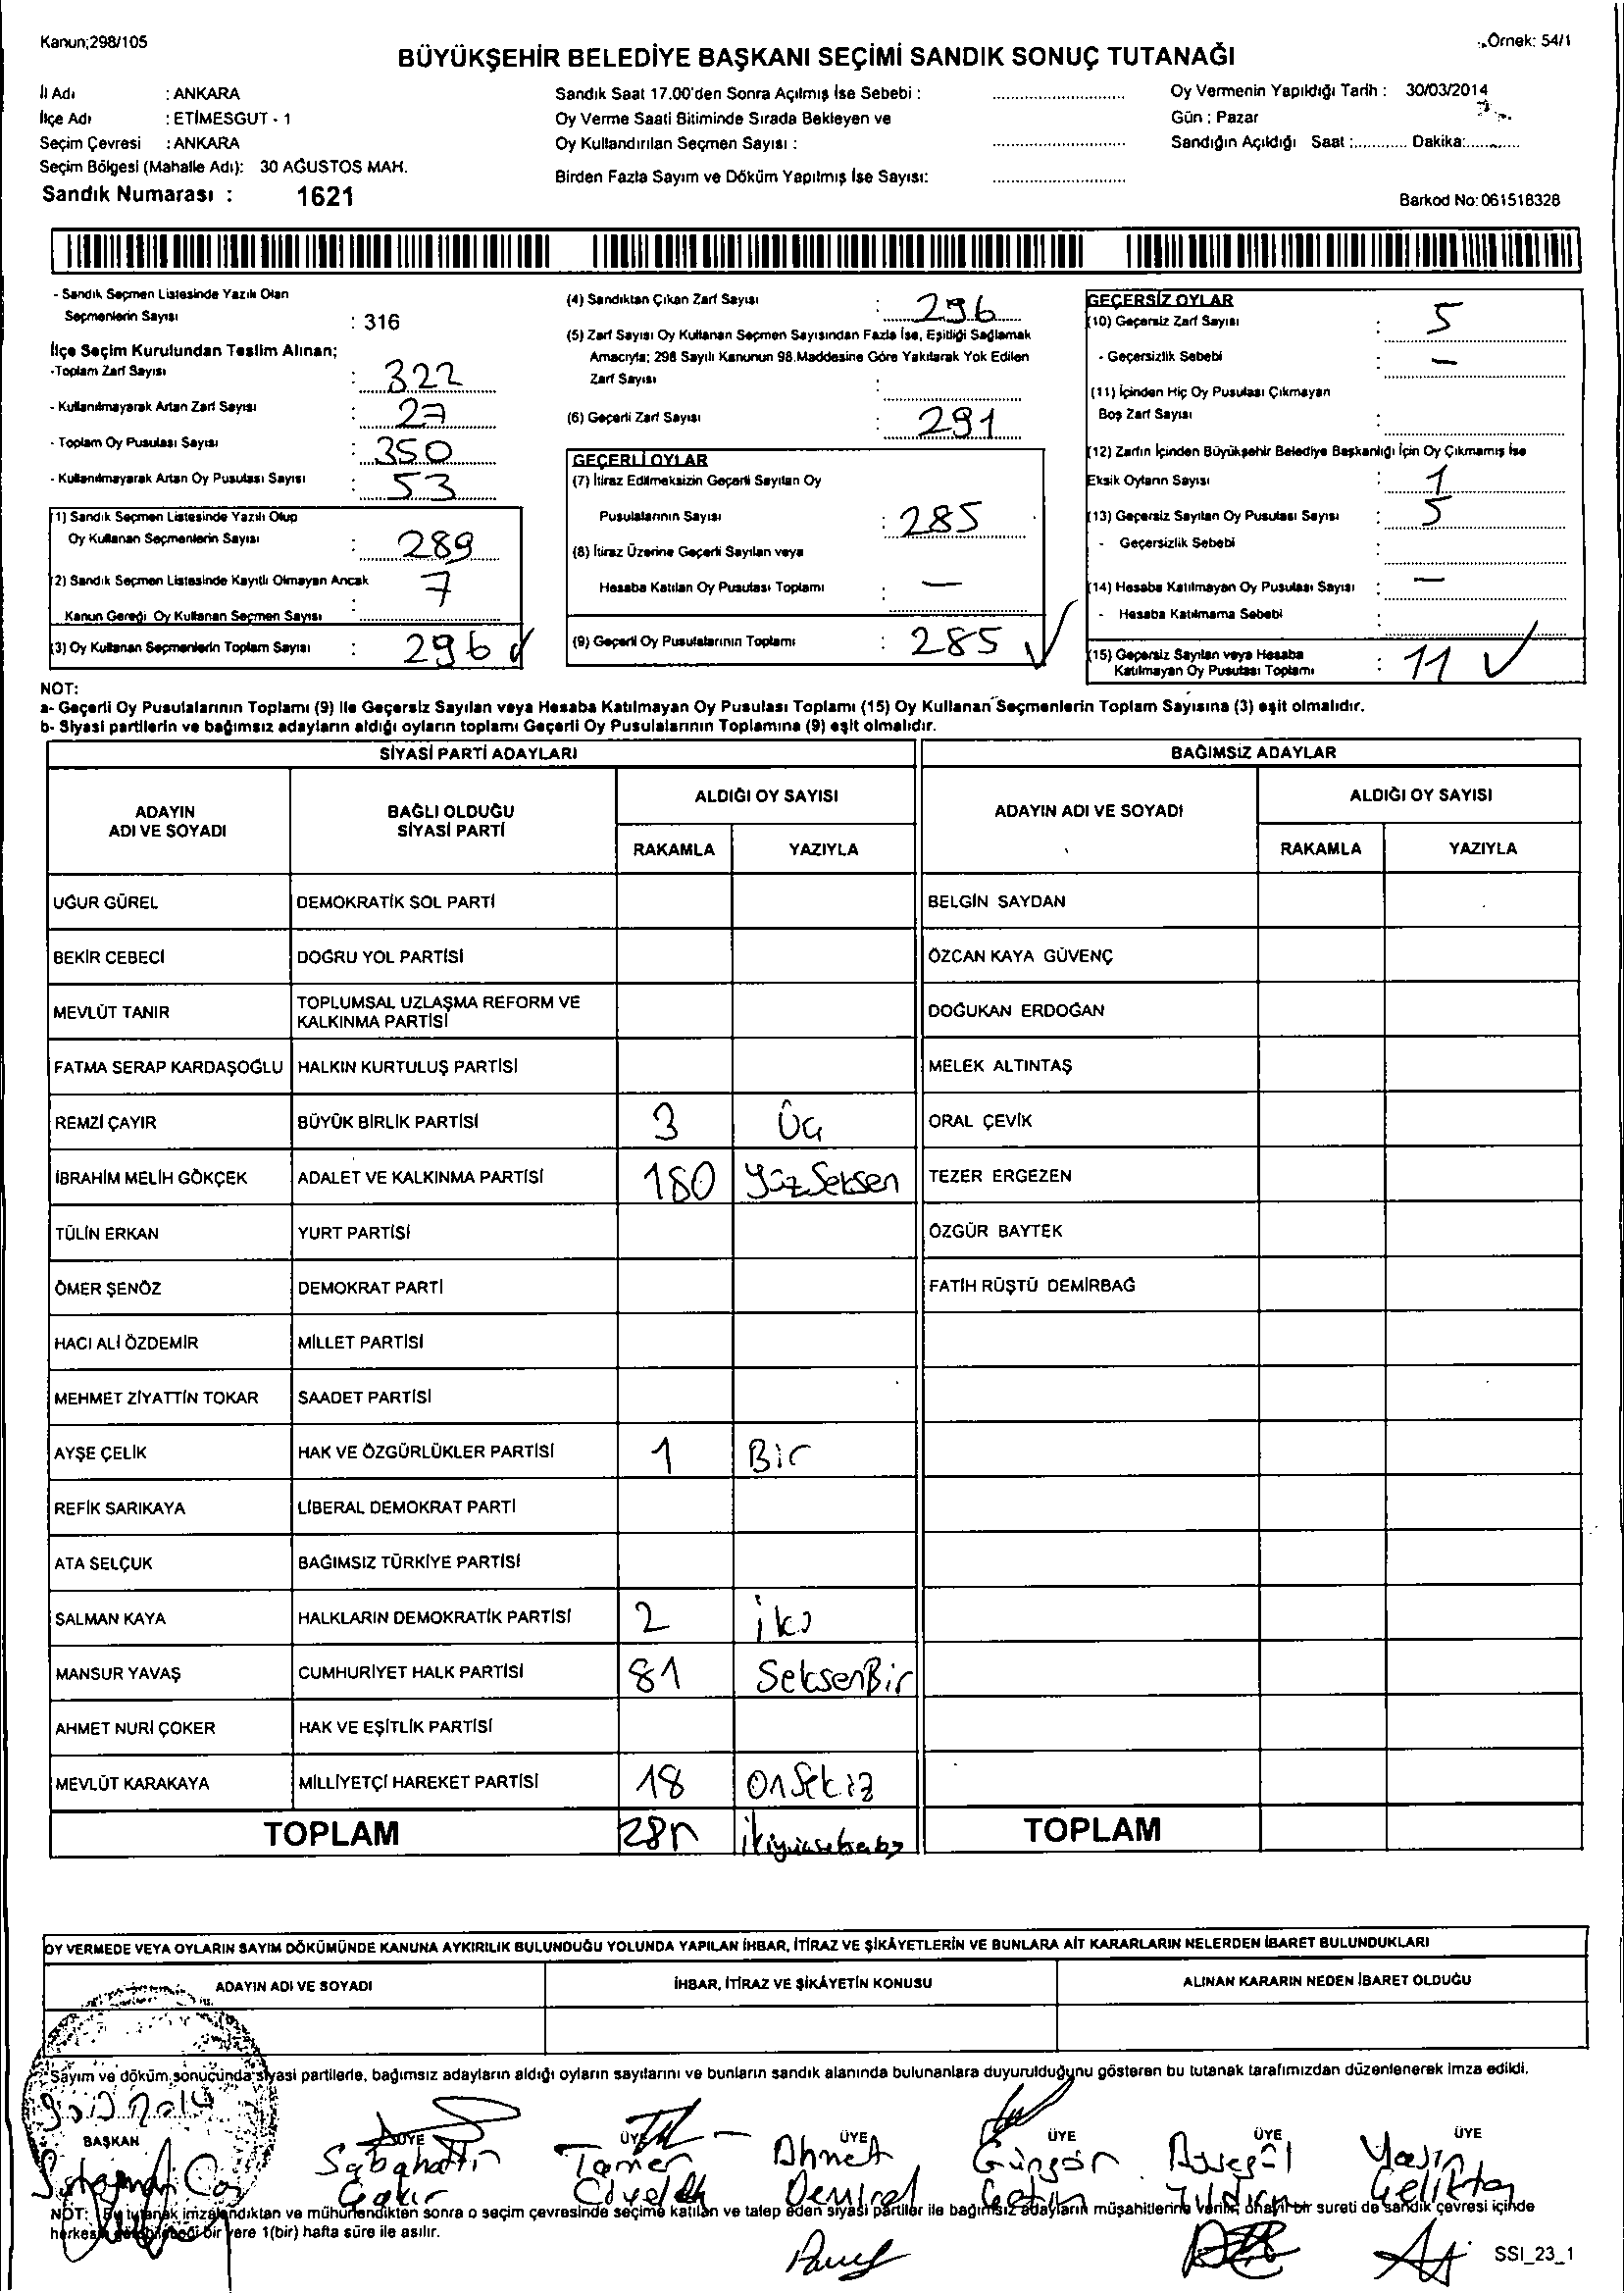 Kanun;298/105
Örnek: 54/1
BÜYÜKŞEHİR BELEDİYE BAŞKANI SEÇİMİ SANDIK SONUÇ TUTANAĞI
İl Adı : ANKARA
İlçe Adı : ETİMESGUT - 1
Seçim Çevresi : ANKARA
Seçim Bölgesi (Mahalle Adı): 30 AĞUSTOS MAH.
Sandık Numarası : 1621
Sandık Saat 17.00'den Sonra Açılmış İse Sebebi :
Oy Verme Saati Bitiminde Sırada Bekleyen ve
Oy Kullandırılan Seçmen Sayısı :
Birden Fazla Sayım ve Döküm Yapılmış İse Sayısı:
Oy Vermenin Yapıldığı Tarih : 30/03/2014
Gün : Pazar
Sandığın Açıldığı Saat :............ Dakika:............
Barkod No: 061518328
- Sandık Seçmen Listesinde Yazılı Olan
Seçmenlerin Sayısı : 316
İlçe Seçim Kurulundan Teslim Alınan;
-Toplam Zarf Sayısı : 322
- Kullanılmayarak Artan Zarf Sayısı : 27
- Toplam Oy Pusulası Sayısı : 350
- Kullanılmayarak Artan Oy Pusulası Sayısı : 53
(1) Sandık Seçmen Listesinde Yazılı Olup
Oy Kullanan Seçmenlerin Sayısı : 289
(2) Sandık Seçmen Listesinde Kayıtlı Olmayan Ancak
Kanun Gereği Oy Kullanan Seçmen Sayısı : 7
(3) Oy Kullanan Seçmenlerin Toplam Sayısı : 296
(4) Sandıktan Çıkan Zarf Sayısı : 296
(5) Zarf Sayısı Oy Kullanan Seçmen Sayısından Fazla İse, Eşitliği Sağlamak
Amacıyla; 298 Sayılı Kanunun 98.Maddesine Göre Yakılarak Yok Edilen
Zarf Sayısı :
(6) Geçerli Zarf Sayısı : 291
GEÇERLİ OYLAR
(7) İtiraz Edilmeksizin Geçerli Sayılan Oy
Pusulalarının Sayısı : 285
(8) İtiraz Üzerine Geçerli Sayılan veya
Hesaba Katılan Oy Pusulası Toplamı : —
(9) Geçerli Oy Pusulalarının Toplamı : 285 ✓
GEÇERSİZ OYLAR
(10) Geçersiz Zarf Sayısı : 5
- Geçersizlik Sebebi : —
(11) İçinden Hiç Oy Pusulası Çıkmayan
Boş Zarf Sayısı :
(12) Zarfın İçinden Büyükşehir Belediye Başkanlığı İçin Oy Çıkmamış İse
Eksik Oyların Sayısı : 1
(13) Geçersiz Sayılan Oy Pusulası Sayısı : 5
- Geçersizlik Sebebi :
(14) Hesaba Katılmayan Oy Pusulası Sayısı : —
- Hesaba Katılmama Sebebi :
(15) Geçersiz Sayılan veya Hesaba
Katılmayan Oy Pusulası Toplamı : 11 ✓
NOT:
a- Geçerli Oy Pusulalarının Toplamı (9) İle Geçersiz Sayılan veya Hesaba Katılmayan Oy Pusulası Toplamı (15) Oy Kullanan Seçmenlerin Toplam Sayısına (3) eşit olmalıdır.
b- Siyasi partilerin ve bağımsız adayların aldığı oyların toplamı Geçerli Oy Pusulalarının Toplamına (9) eşit olmalıdır.
SİYASİ PARTİ ADAYLARI
ADAYIN ADI VE SOYADI
BAĞLI OLDUĞU SİYASİ PARTİ
ALDIĞI OY SAYISI
RAKAMLA YAZIYLA
UĞUR GÜREL DEMOKRATİK SOL PARTİ
BEKİR CEBECİ DOĞRU YOL PARTİSİ
MEVLÜT TANIR TOPLUMSAL UZLAŞMA REFORM VE
KALKINMA PARTİSİ
FATMA SERAP KARDAŞOĞLU HALKIN KURTULUŞ PARTİSİ
REMZİ ÇAYIR BÜYÜK BİRLİK PARTİSİ 3 Üç
İBRAHİM MELİH GÖKÇEK ADALET VE KALKINMA PARTİSİ 180 YüzSeksen
TÜLİN ERKAN YURT PARTİSİ
ÖMER ŞENÖZ DEMOKRAT PARTİ
HACI ALİ ÖZDEMİR MİLLET PARTİSİ
MEHMET ZİYATTİN TOKAR SAADET PARTİSİ
AYŞE ÇELİK HAK VE ÖZGÜRLÜKLER PARTİSİ 1 Bir
REFİK SARIKAYA LİBERAL DEMOKRAT PARTİ
ATA SELÇUK BAĞIMSIZ TÜRKİYE PARTİSİ
SALMAN KAYA HALKLARIN DEMOKRATİK PARTİSİ 2 iki
MANSUR YAVAŞ CUMHURİYET HALK PARTİSİ 81 SeksenBir
AHMET NURİ ÇOKER HAK VE EŞİTLİK PARTİSİ
MEVLÜT KARAKAYA MİLLİYETÇİ HAREKET PARTİSİ 18 OnSekiz
TOPLAM
BAĞIMSIZ ADAYLAR
ADAYIN ADI VE SOYADI
ALDIĞI OY SAYISI
RAKAMLA YAZIYLA
BELGİN SAYDAN
ÖZCAN KAYA GÜVENÇ
DOĞUKAN ERDOĞAN
MELEK ALTINTAŞ
ORAL ÇEVİK
TEZER ERGEZEN
ÖZGÜR BAYTEK
FATİH RÜŞTÜ DEMİRBAĞ
TOPLAM
OY VERMEDE VEYA OYLARIN SAYIM DÖKÜMÜNDE KANUNA AYKIRILIK BULUNDUĞU YOLUNDA YAPILAN İHBAR, İTİRAZ VE ŞİKÂYETLERİN VE BUNLARA AİT KARARLARIN NELERDEN İBARET BULUNDUKLARI
ADAYIN ADI VE SOYADI İHBAR, İTİRAZ VE ŞİKÂYETİN KONUSU ALINAN KARARIN NEDEN İBARET OLDUĞU
Sayım ve döküm sonucunda siyasi partilerle, bağımsız adayların aldığı oyların sayılarını ve bunların sandık alanında bulunanlara duyurulduğunu gösteren bu tutanak tarafımızdan düzenlenerek imza edildi.
BAŞKAN ÜYE ÜYE ÜYE ÜYE ÜYE ÜYE
Sabahattin Tamer Ahmet Güngör Ayşegül Yasin
Çakır Demirel Çetin Yıldırım Çeliktaş
NOT: Bu tutanak imzalandıktan ve mühürlendikten sonra o seçim çevresinde seçime katılan ve talep eden siyasi partiler ile bağımsız adayların müşahitlerine verilir, onaylı bir sureti de sandık çevresi içinde
herkesin görebileceği bir yere 1(bir) hafta süre ile asılır.
SSI_23_1